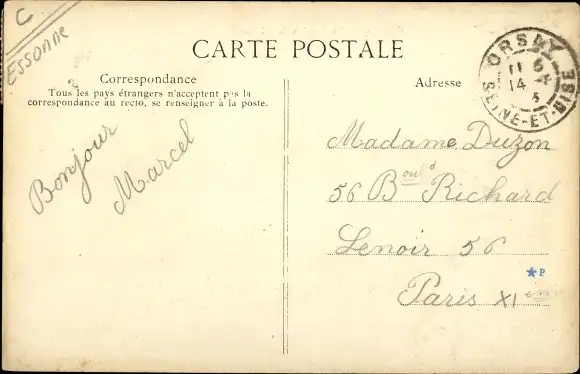 C
ESSONNE
CARTE POSTALE
Correspondance
Tous les pays étrangers n'acceptent pas la
correspondance au recto, se renseigner à la poste.
Adresse
ORSAY
11 6
14
SEINE-ET-OISE
Bonjour
Marcel
Madame Duzon
56 Boul^d Richard
Lenoir 56
Paris XI^em
*P